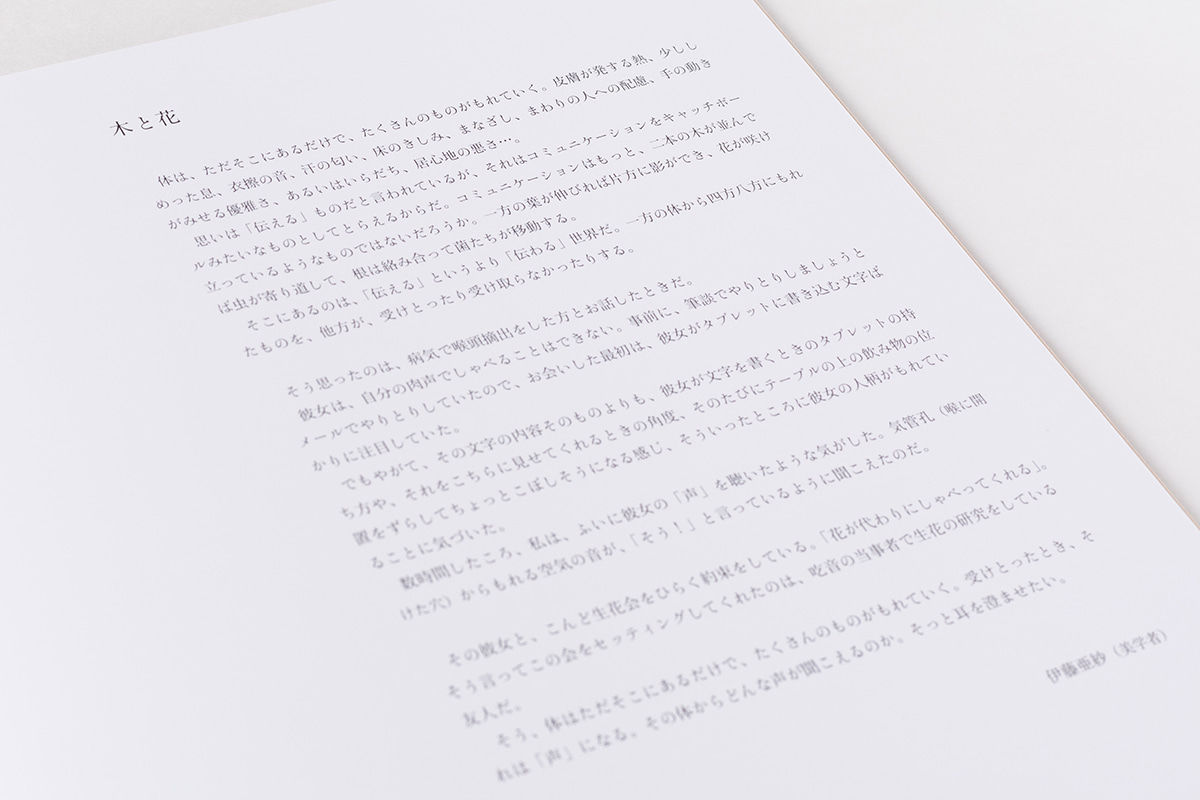 木と花
体は、ただそこにあるだけで、たくさんのものがもれていく。皮膚が発する熱、少しし
めった息、衣擦の音、汗の匂い、床のきしみ、まなざし、まわりの人への配慮、手の動き
がみせる優雅さ、あるいはいらだち、居心地の悪さ…。
思いは「伝える」ものだと言われているが、それはコミュニケーションをキャッチボー
ルみたいなものとしてとらえるからだ。コミュニケーションはもっと、二本の木が並んで
立っているようなものではないだろうか。一方の葉が伸びれば片方に影ができ、花が咲け
ば虫が寄り道して、根は絡み合って菌たちが移動する。
そこにあるのは、「伝える」というより「伝わる」世界だ。一方の体から四方八方にもれ
たものを、他方が、受けとったり受け取らなかったりする。
そう思ったのは、病気で喉頭摘出をした方とお話したときだ。
彼女は、自分の肉声でしゃべることはできない。事前に、筆談でやりとりしましょうと
メールでやりとりしていたので、お会いした最初は、彼女がタブレットに書き込む文字ば
かりに注目していた。
でもやがて、その文字の内容そのものよりも、彼女が文字を書くときのタブレットの持
ち方や、それをこちらに見せてくれるときの角度、そのたびにテーブルの上の飲み物の位
置をずらしてちょっとこぼしそうになる感じ、そういったところに彼女の人柄がもれてい
ることに気づいた。
数時間したころ、私は、ふいに彼女の「声」を聴いたような気がした。気管孔（喉に開
けた穴）からもれる空気の音が、「そう！」と言っているように聞こえたのだ。
その彼女と、こんど生花会をひらく約束をしている。「花が代わりにしゃべってくれる」。
そう言ってこの会をセッティングしてくれたのは、吃音の当事者で生花の研究をしている
友人だ。
そう、体はただそこにあるだけで、たくさんのものがもれていく。受けとったとき、そ
れは「声」になる。その体からどんな声が聞こえるのか。そっと耳を澄ませたい。
伊藤亜紗（美学者）